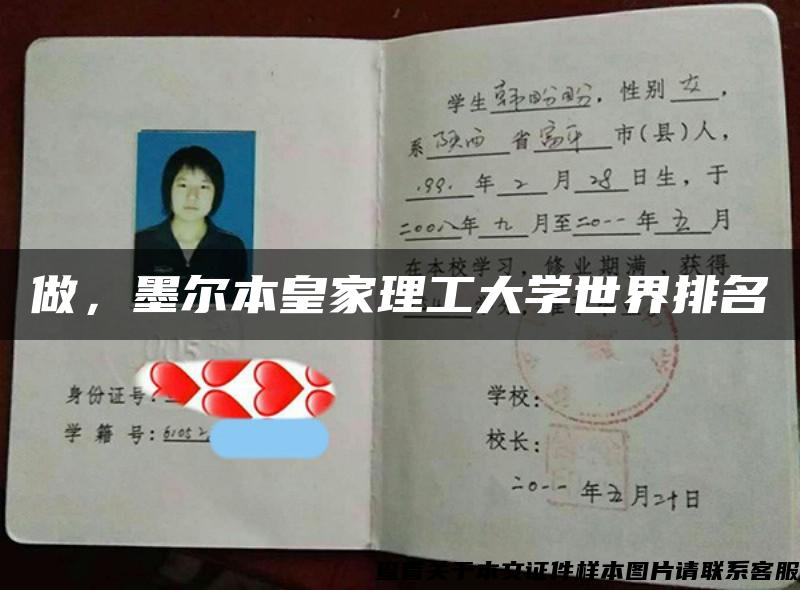 学生韩盼盼，性别女，
系陕西省富平市(县)人，
1991年2月28日生，于
二00八年九月至二0一一年五月
在本校学习，修业期满，获得
做，墨尔本皇家理工大学世界排名
身份证号：
学籍号：61052
学校：
校长：
二0一一年五月二十日
查看关于本文证件样本图片请联系客服